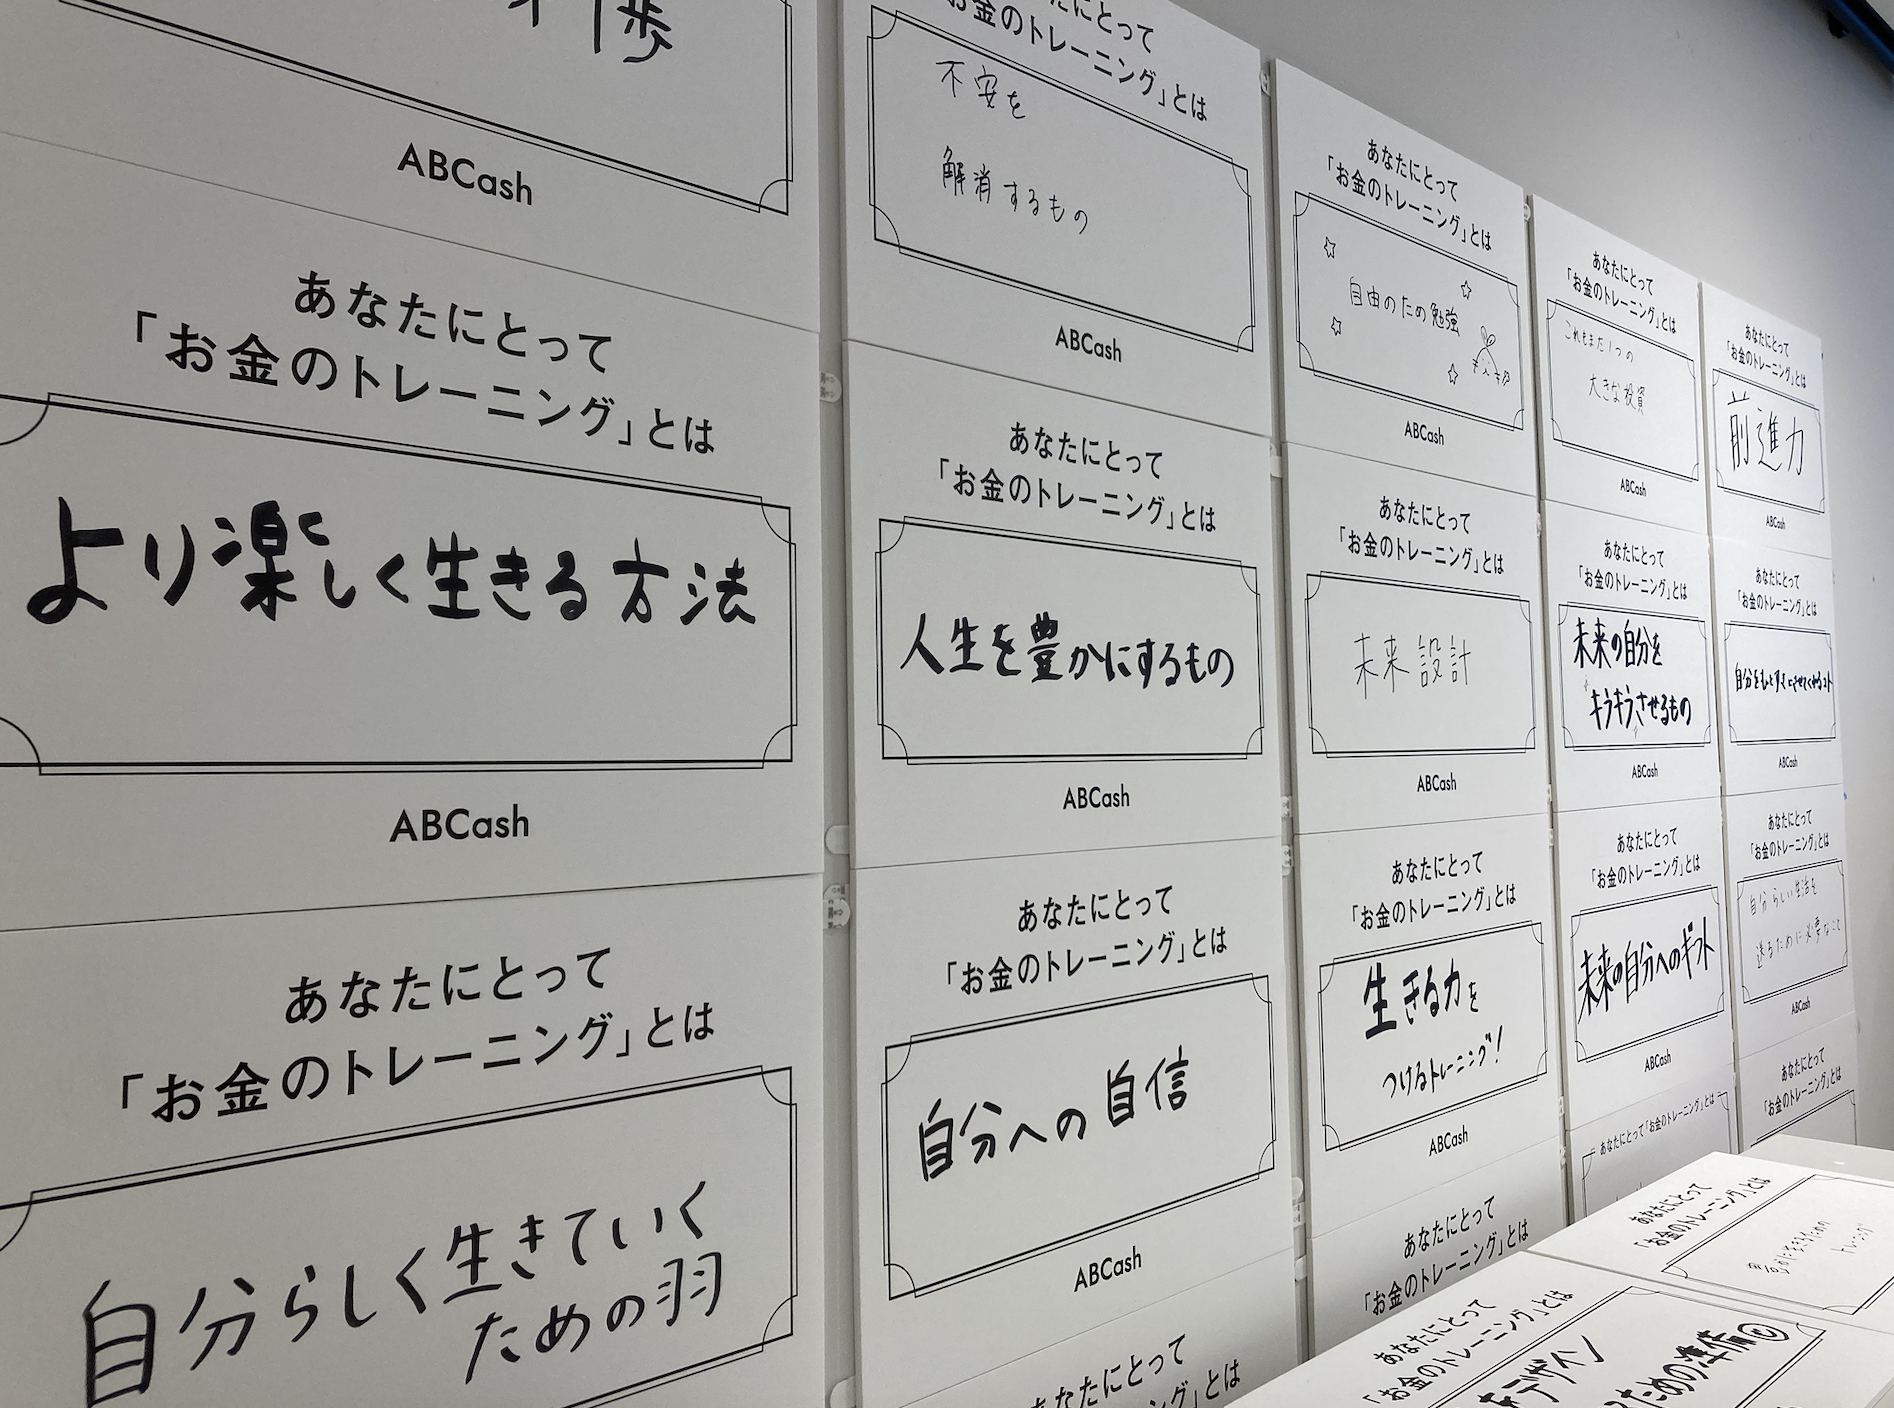 ABCash
あなたにとって
「お金のトレーニング」とは
より楽しく生きる方法
ABCash
あなたにとって
「お金のトレーニング」とは
自分らしく生きていく
ための羽
にとって
お金のトレーニング」とは
不安を
解消するもの
ABCash
あなたにとって
「お金のトレーニング」とは
人生を豊かにするもの
ABCash
あなたにとって
「お金のトレーニング」とは
自分への自信
ABCash
なたにとって
ーニング」とは
あなたにとって
「お金のトレーニング」とは
自由のための勉強
ABCash
あなたにとって
「お金のトレーニング」とは
未来設計
ABCash
あなたにとって
「お金のトレーニング」とは
生きる力を
つけるトレーニング!
ABCash
あなたにとって
「お金のトレーニング」とは
あなたにとって
「お金のトレーニング」とは
これもまた1つの
大きな投資
ABCash
あなたにとって
「お金のトレーニング」とは
未来の自分を
キラキラさせるもの
ABCash
あなたにとって
「お金のトレーニング」とは
未来の自分へのギフト
ABCash
あなたにとって「お金のトレーニング」とは
あなたにとって
「お金のトレーニング」とは
前進力
ABCash
あなたにとって
「お金のトレーニング」とは
ABCash
あなたにとって
「お金のトレーニング」とは
自分らしい生活を
送るために必要なこと
ABCash
あなたにとって
「お金のトレーニング」とは
あなたにとって
「お金のトレーニング」とは
トレーニング
あなたにとって
「お金のトレーニング」とは
デザイン
ための準備